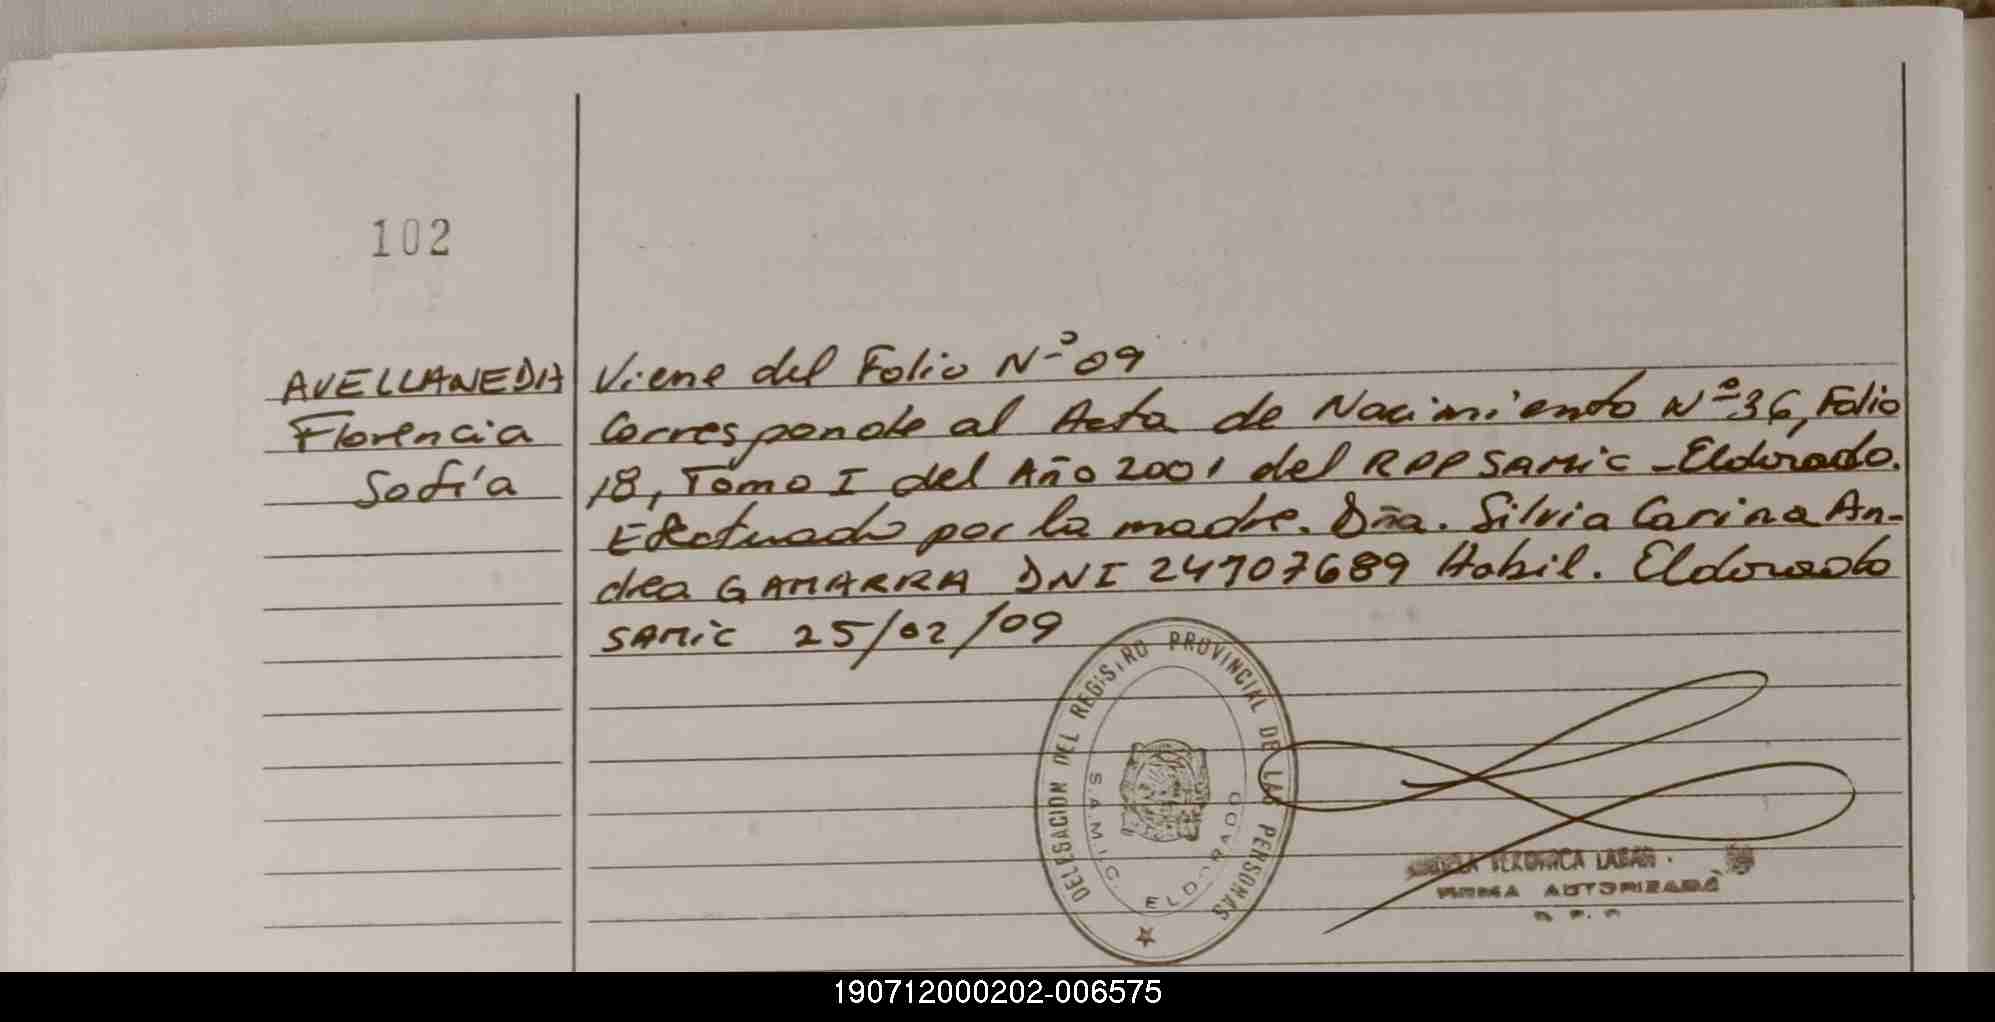 102
AVELLANEDA
Florencia
Sofía
Viene del Folio Nº 09
Corresponde al Acta de Nacimiento Nº 36, Folio
18, Tomo I del Año 2001 del RPP SAMIC - Eldorado.
Efectuado por la madre. Dña. Silvia Carina An-
drea GAMARRA DNI 24707689 Habil. Eldorado
SAMIC 25/02/09
DELEGACION DEL REGISTRO PROVINCIAL DE LAS PERSONAS
S.A.M.I.C. ELDORADO
VERONICA
FIRMA AUTORIZADA
190712000202-006575